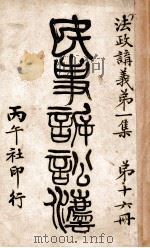 法政講義第一集 第十六冊
民事訴訟法
丙午社印行